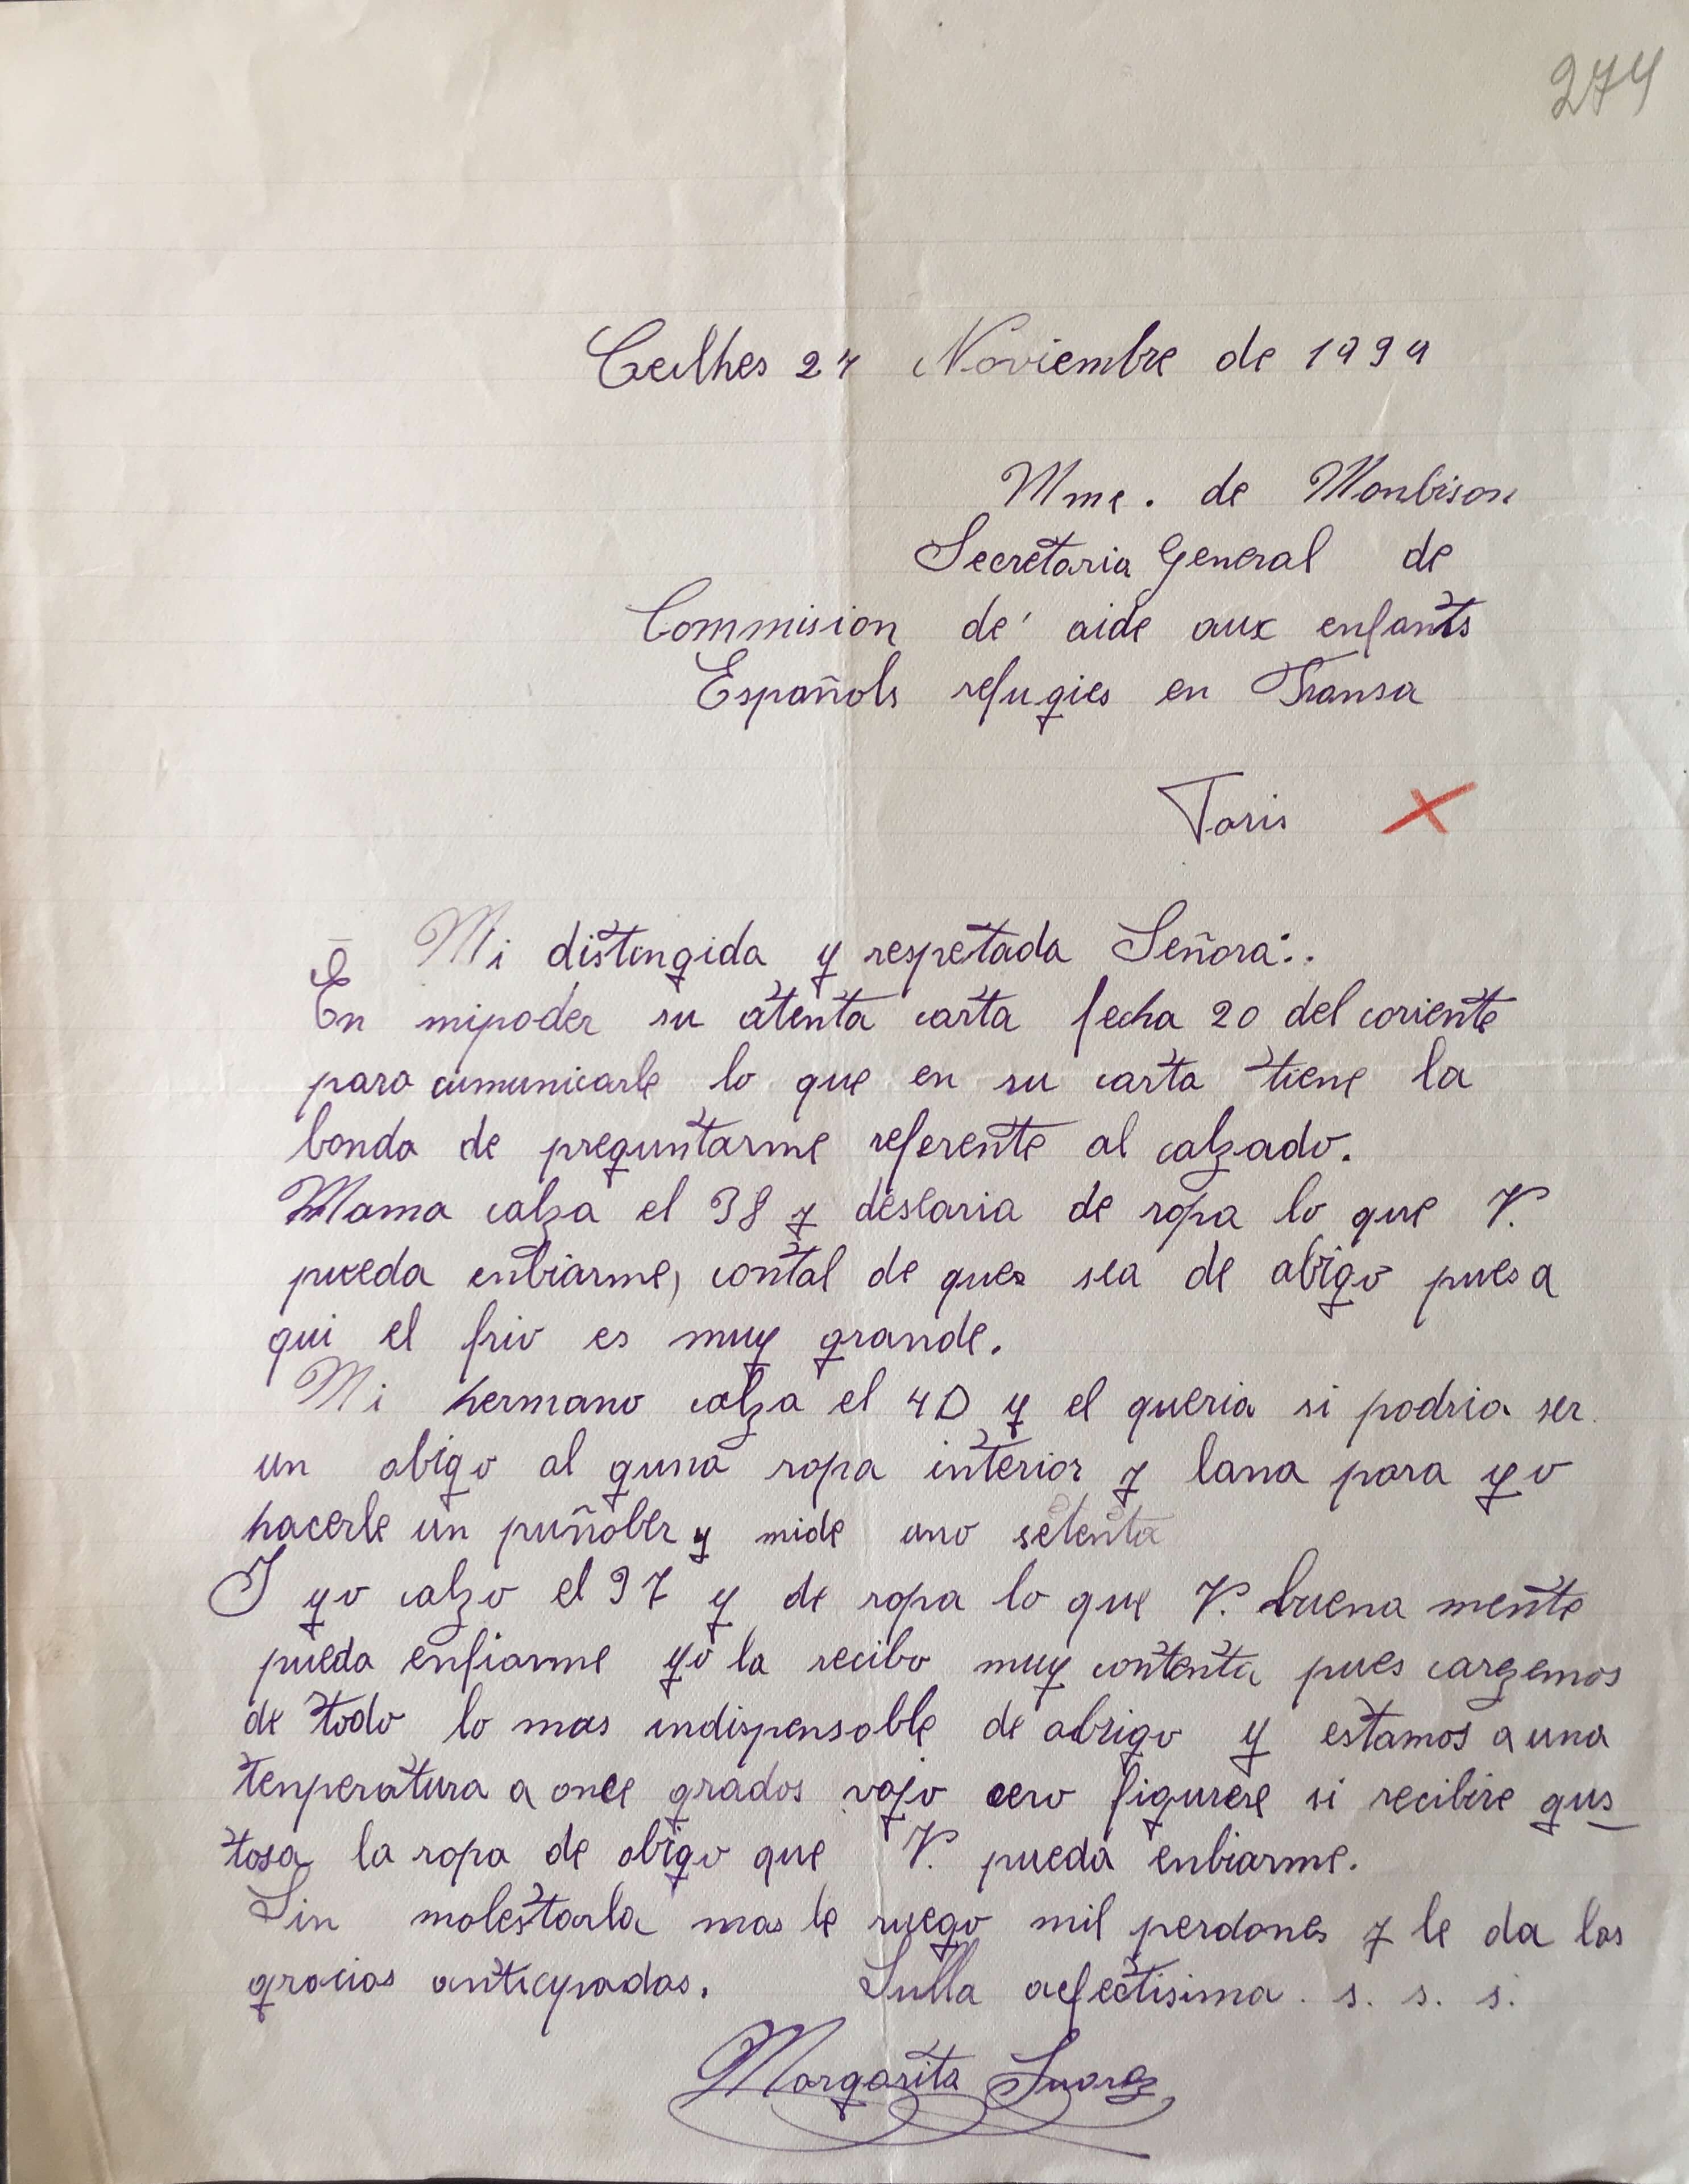 274
Ceilhes 24 Noviembre de 1939
Mme. de Monbison
Secretaria General de
Commision de' aide aux enfants
Españols refugies en Fransa
Paris X
Mi distengida y respetada Señora:.
En mipoder su atenta carta fecha 20 del coriente
para cumunicarle lo que en su carta tiene la
bonda de preguntarme referente al calzado.
Mama calza el 38 y desearia de ropa lo que V.
pueda enbiarme, contal de que sea de abigo pues a
qui el frio es muy grande.
Mi hermano calza el 40 y el queria si podria ser
un abigo al guna ropa interior y lana para yo
hacerle un puñober y mide uno setenta
I yo calzo el 37 y de ropa lo que V. buena mente
pueda enfiarme yo la recibo muy contenta pues carzemos
de todo lo mas indispensable de abrigo y estamos a una
tenperatura a once grados vajo cero figurese si recibire gus
tosa la ropa de abigo que V. pueda enbiarme.
Sin molestarla mas le ruego mil perdones y le da las
gracias anticipadas. Sulla afectisima. s. s. s.
Margarita Suarez